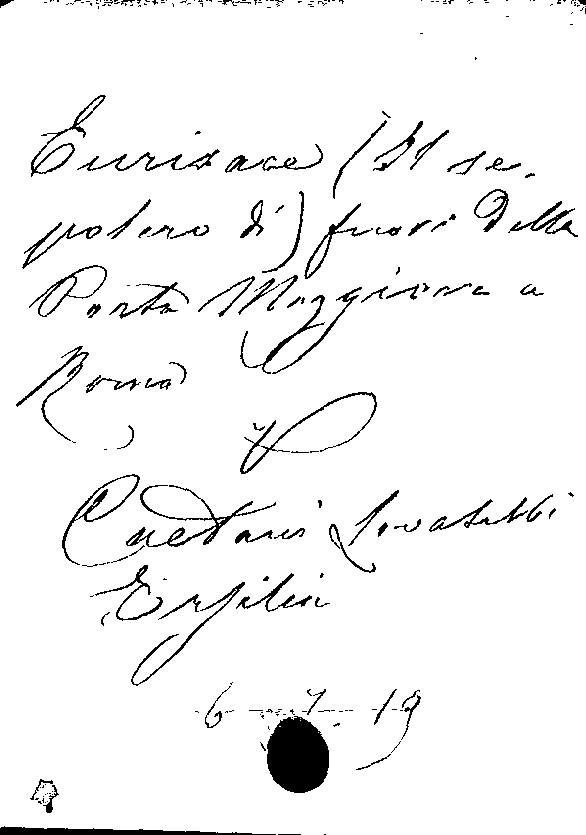 Eurisace (Il se-
polcro di) fuori della
Porta Maggiore a
Roma
V
Caetani Lovatelli
Ersilia
6 - 7 - 19